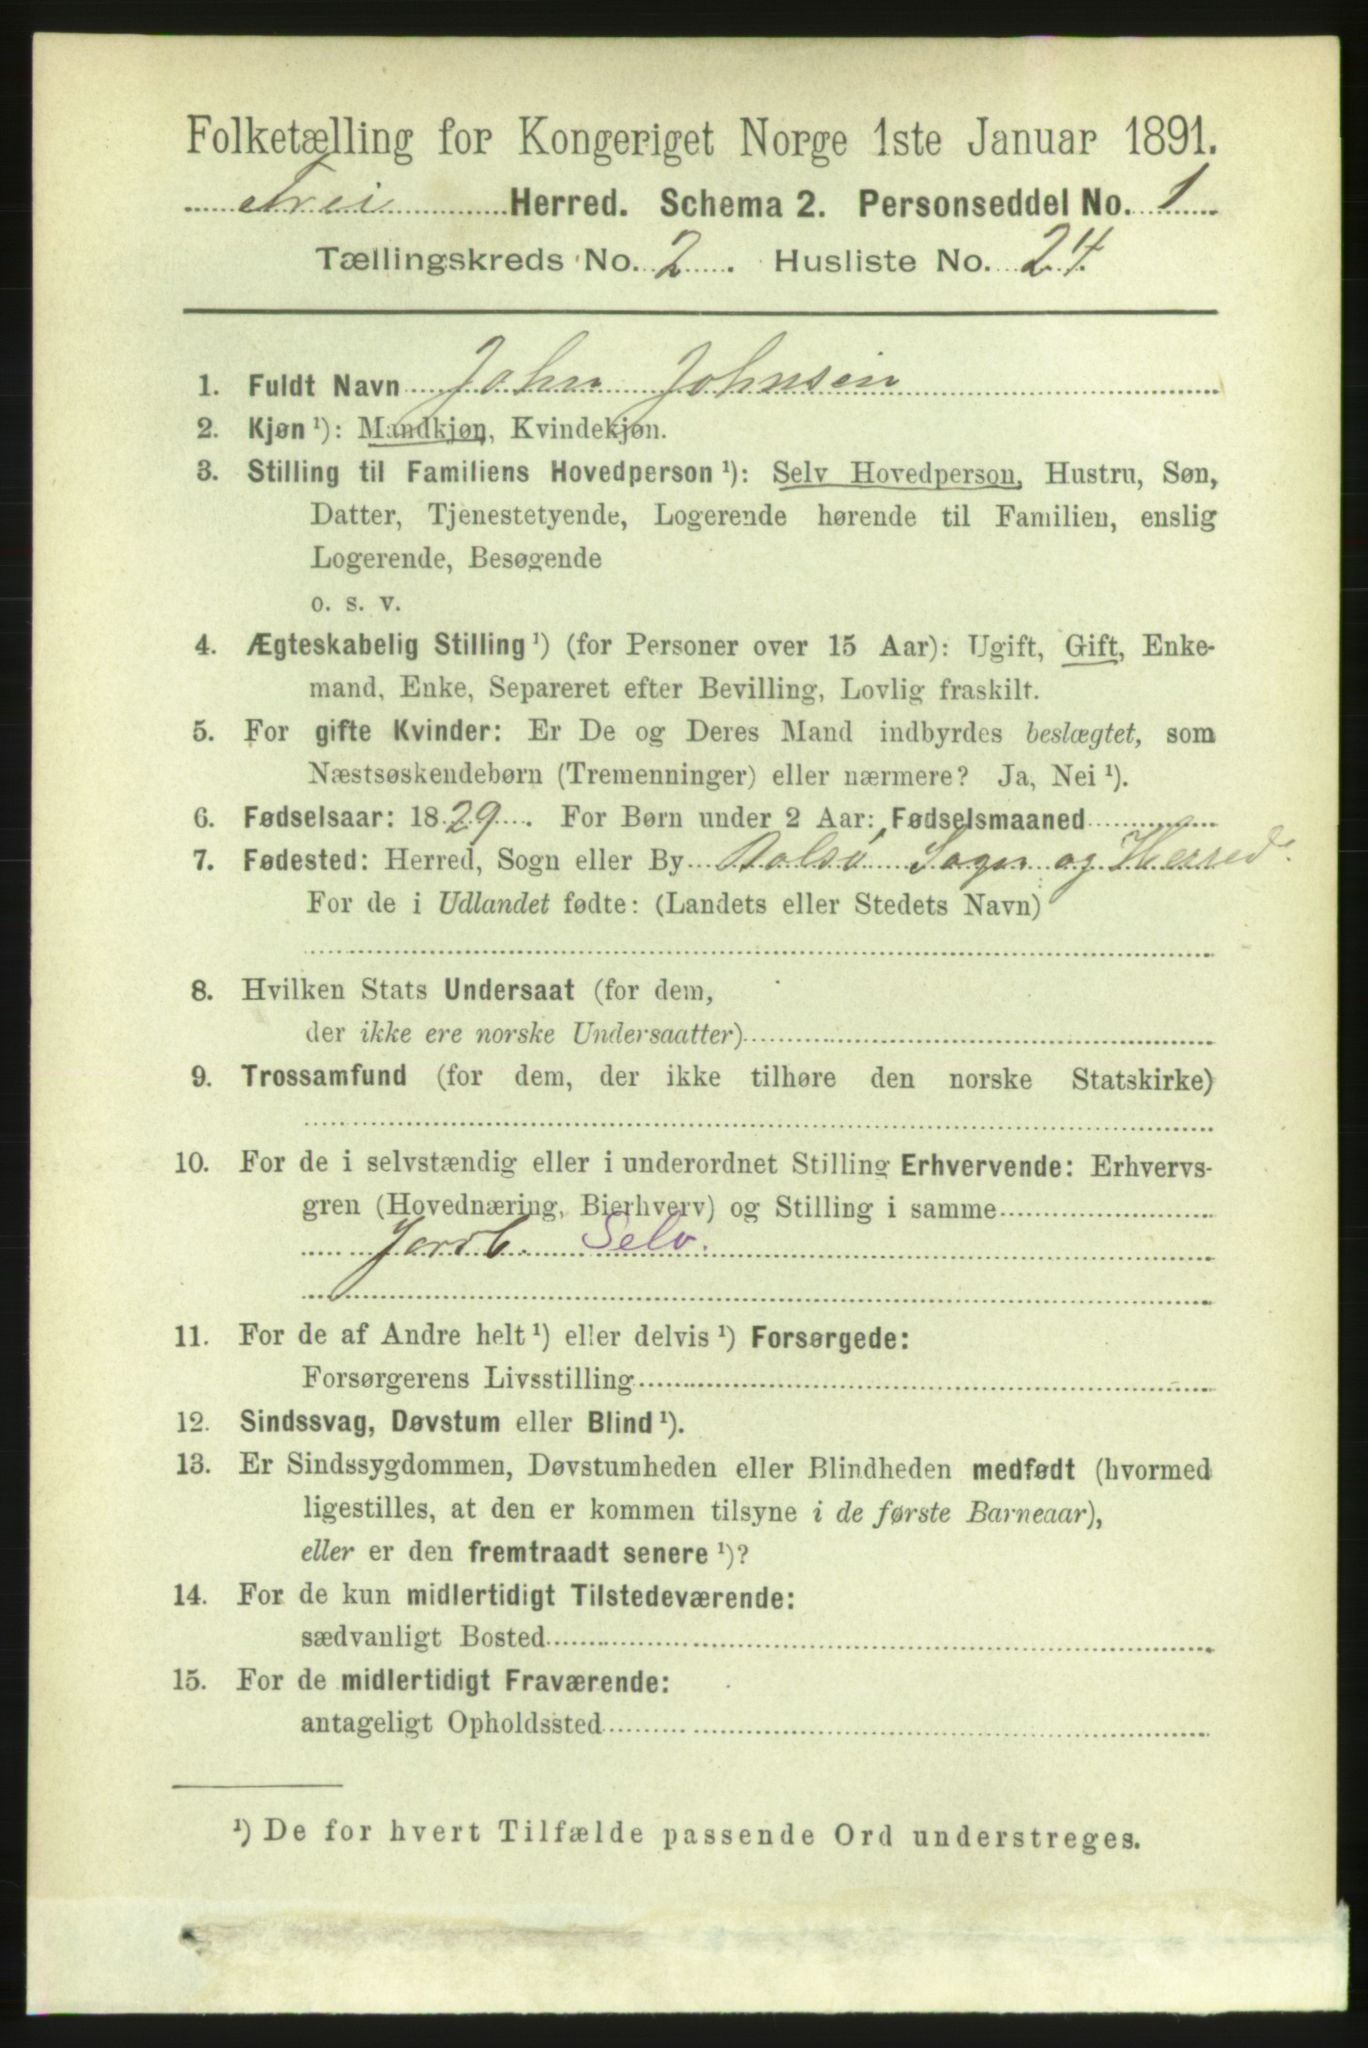 Folketælling for Kongeriget Norge 1ste Januar 1891.
Frei Herred. Schema 2. Personseddel No. 1
Tællingskreds No. 2. Husliste No. 24.
1. Fuldt Navn John Johnsen
2. Kjøn ¹): Mandkjøn, Kvindekjøn.
3. Stilling til Familiens Hovedperson ¹): Selv Hovedperson, Hustru, Søn,
Datter, Tjenestetyende, Logerende hørende til Familien, enslig
Logerende, Besøgende
o. s. v.
4. Ægteskabelig Stilling ¹) (for Personer over 15 Aar): Ugift, Gift, Enke-
mand, Enke, Separeret efter Bevilling, Lovlig fraskilt.
5. For gifte Kvinder: Er De og Deres Mand indbyrdes beslægtet, som
Næstsøskendebørn (Tremenninger) eller nærmere? Ja, Nei ¹).
6. Fødselsaar: 1829. For Børn under 2 Aar: Fødselsmaaned
7. Fødested: Herred, Sogn eller By Bolsø Sogn og Herred.
For de i Udlandet fødte: (Landets eller Stedets Navn)
8. Hvilken Stats Undersaat (for dem,
der ikke ere norske Undersaatter)
9. Trossamfund (for dem, der ikke tilhøre den norske Statskirke)
10. For de i selvstændig eller i underordnet Stilling Erhvervende: Erhvervs-
gren (Hovednæring, Bierhverv) og Stilling i samme
Jordb. Selv.
11. For de af Andre helt ¹) eller delvis ¹) Forsørgede:
Forsørgerens Livsstilling
12. Sindssvag, Døvstum eller Blind ¹).
13. Er Sindssygdommen, Døvstumheden eller Blindheden medfødt (hvormed
ligestilles, at den er kommen tilsyne i de første Barneaar),
eller er den fremtraadt senere ¹)?
14. For de kun midlertidigt Tilstedeværende:
sædvanligt Bosted
15. For de midlertidigt Fraværende:
antageligt Opholdssted
¹) De for hvert Tilfælde passende Ord understreges.